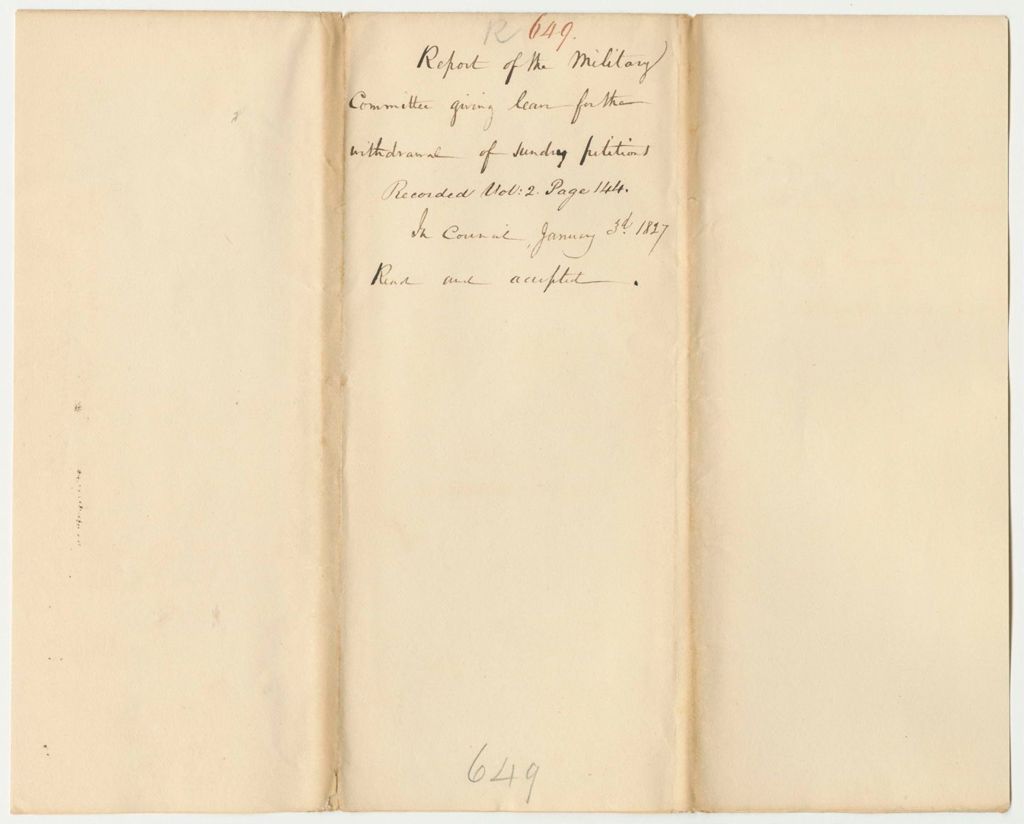 R 649.
Report of the Military
Committee giving leave for the
withdrawal of sundry petitions
Recorded Vol: 2. Page 144.
In Council, January 3d. 1827
Read and accepted.
649